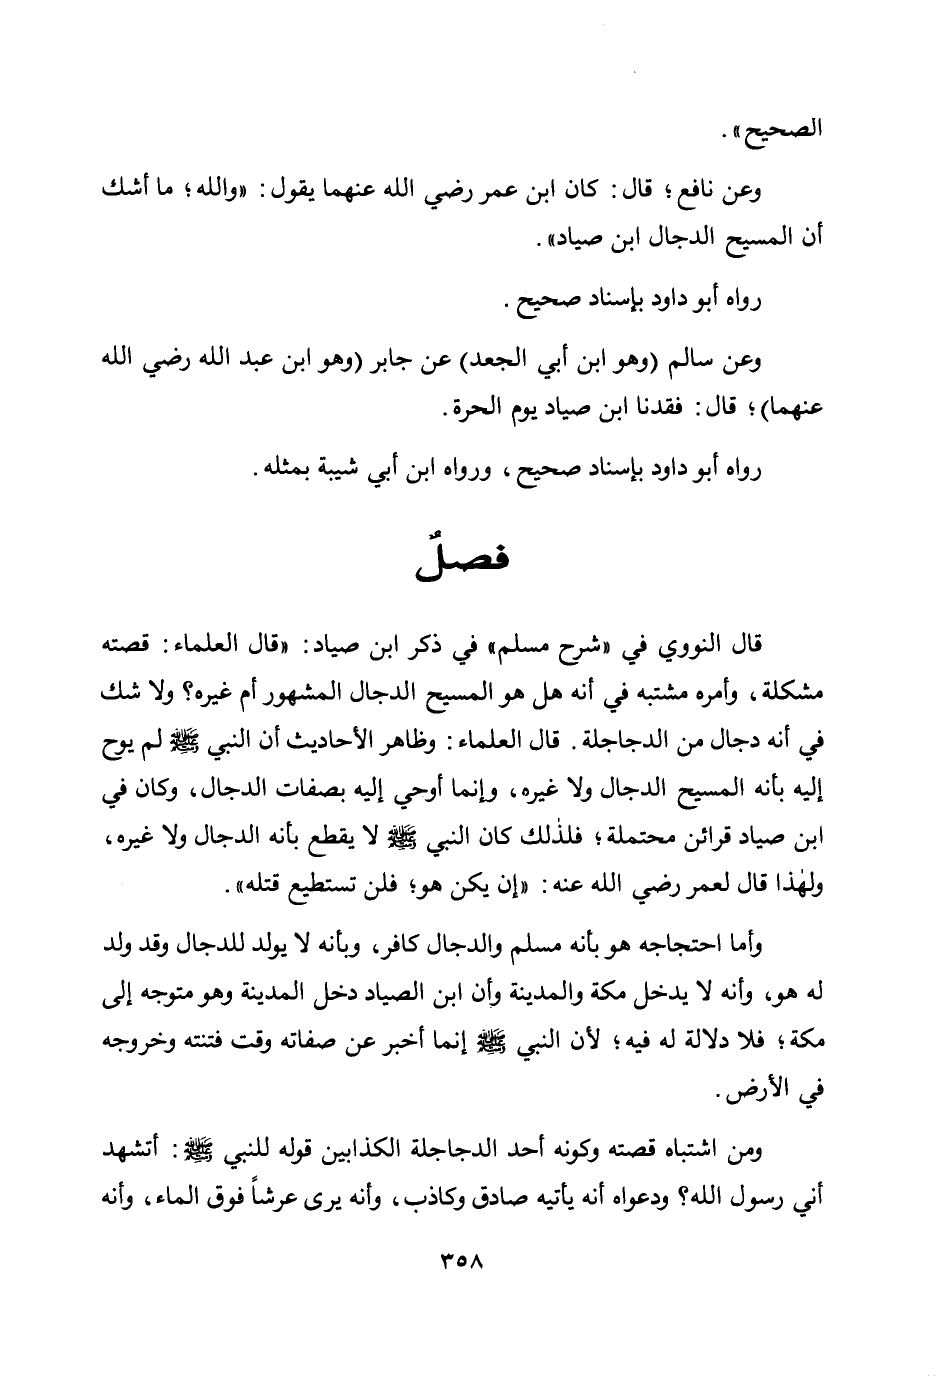 الصحيح» .
وعن نافع؛ قال: كان ابن عمر رضي الله عنهما يقول: «والله؛ ما أشك
أن المسيح الدجال ابن صياد» .
رواه أبو داود بإسناد صحيح .
وعن سالم (وهو ابن أبي الجعد) عن جابر (وهو ابن عبد الله رضي الله
عنهما)؛ قال: فقدنا ابن صياد يوم الحرة .
رواه أبو داود بإسناد صحيح، ورواه ابن أبي شيبة بمثله .
فصلٌ
قال النووي في «شرح مسلم» في ذكر ابن صياد: «قال العلماء: قصته
مشكلة، وأمره مشتبه في أنه هل هو المسيح الدجال المشهور أم غيره؟ ولا شك
في أنه دجال من الدجاجلة . قال العلماء: وظاهر الأحاديث أن النبي ﷺ لم يوح
إليه بأنه المسيح الدجال ولا غيره، وإنما أوحي إليه بصفات الدجال، وكان في
ابن صياد قرائن محتملة؛ فلذٰلك كان النبي ﷺ لا يقطع بأنه الدجال ولا غيره،
ولهٰذا قال لعمر رضي الله عنه: «إن يكن هو؛ فلن تستطيع قتله» .
وأما احتجاجه هو بأنه مسلم والدجال كافر، وبأنه لا يولد للدجال وقد ولد
له هو، وأنه لا يدخل مكة والمدينة وأن ابن الصياد دخل المدينة وهو متوجه إلى
مكة؛ فلا دلالة له فيه؛ لأن النبي ﷺ إنما أخبر عن صفاته وقت فتنته وخروجه
في الأرض .
ومن اشتباه قصته وكونه أحد الدجاجلة الكذابين قوله للنبي ﷺ: أتشهد
أني رسول الله؟ ودعواه أنه يأتيه صادق وكاذب، وأنه يرى عرشاً فوق الماء، وأنه
٣٥٨